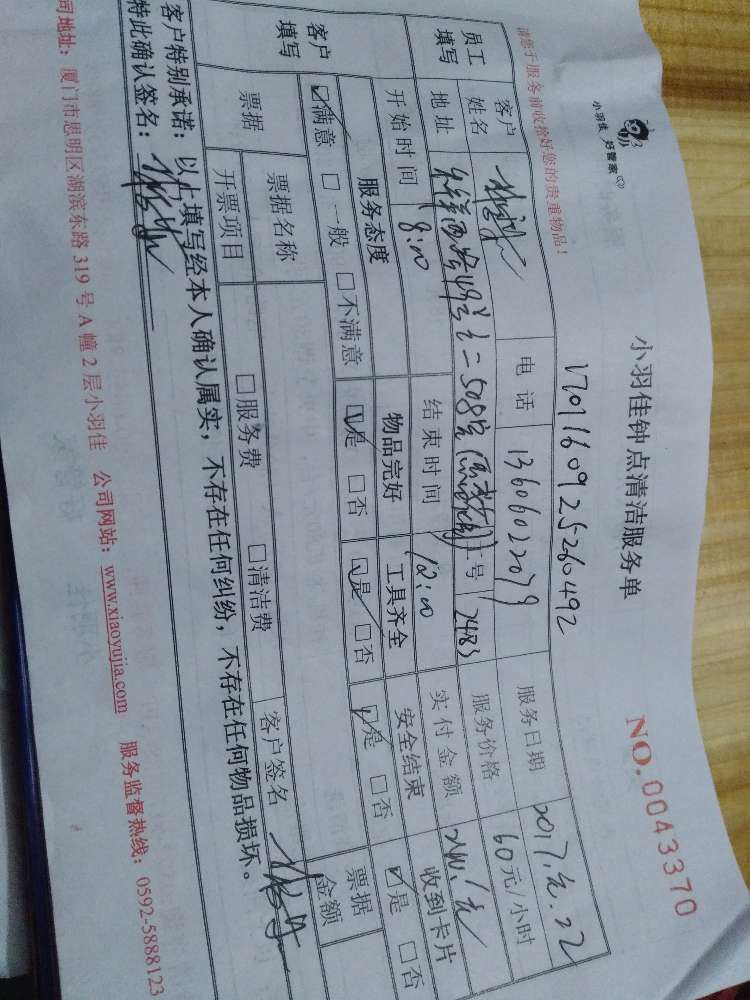 小羽佳 好管家
小羽佳钟点清洁服务单
NO.0043370
请您于服务前收拾好您的贵重物品！
V701160925260492
员工填写
客户姓名
电话 13606022079
服务日期 2017.元.22
地址
508室
工号 2483
服务价格 60元/小时
开始时间 8:00
结束时间 12:00
实付金额 240.元
客户填写
服务态度 物品完好 工具齐全 安全结束 收到卡片
☑满意 □一般 □不满意 ☑是 □否 ☑是 □否 ☑是 □否 ☑是 □否
票据
票据名称
客户签名
票据金额
开票项目 □服务费 □清洁费
客户特别承诺：以上填写经本人确认属实，不存在任何纠纷，不存在任何物品损坏。
特此确认签名：
司地址：厦门市思明区湖滨东路 319 号 A 幢 2 层小羽佳 公司网站：www.xiaoyujia.com 服务监督热线：0592-5888123